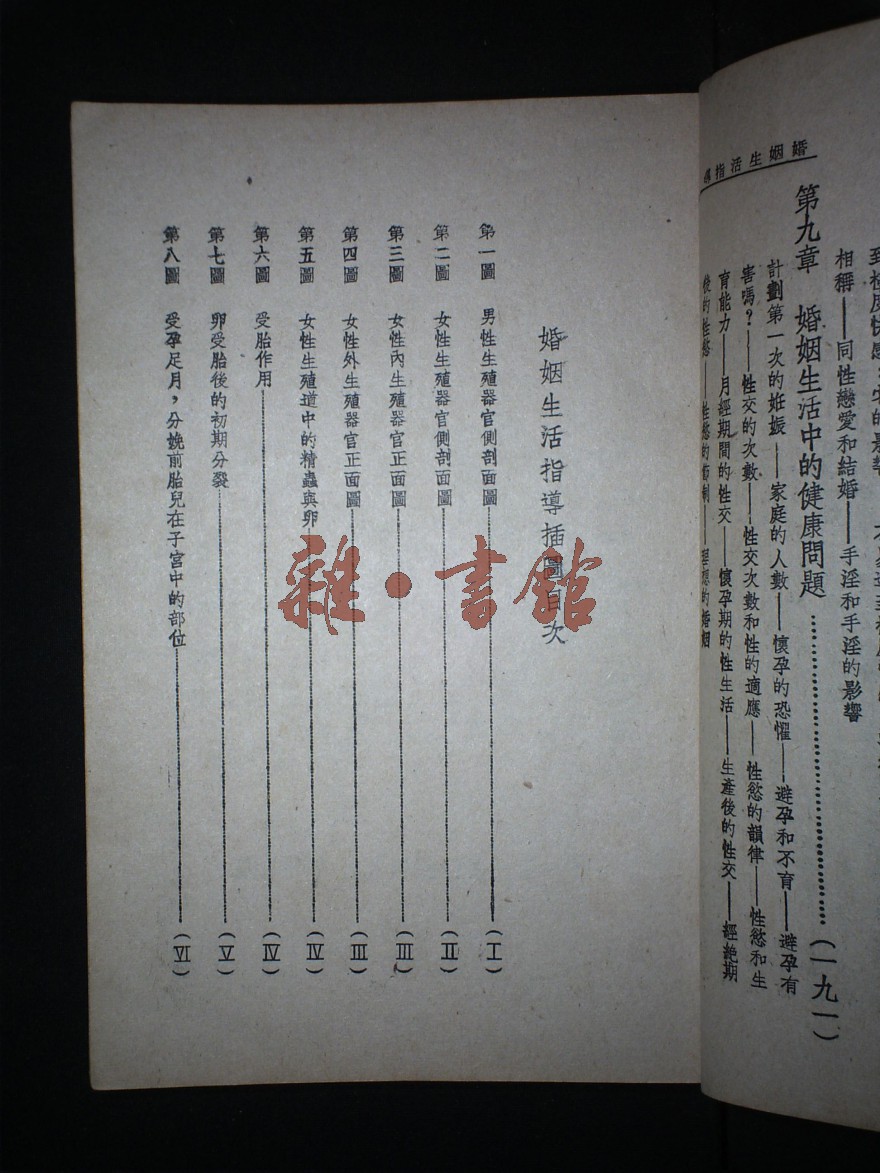 婚姻生活指導
到極度快感
相稱——同性戀愛和結婚——手淫和手淫的影響
第九章　婚姻生活中的健康問題…………(一九一)
計劃第一次的妊娠——家庭的人數——懷孕的恐懼——避孕和不育——避孕有
害嗎？——性交的次數——性交次數和性的適應——性慾的韻律——性慾和生
育能力——月經期間的性交——懷孕期的性生活——生產後的性交——經絕期
後的性慾——性慾的節制——理想的婚姻
婚姻生活指導插圖目次
第一圖　男性生殖器官側剖面圖…………(I)
第二圖　女性生殖器官側剖面圖…………(II)
第三圖　女性內生殖器官正面圖…………(III)
第四圖　女性外生殖器官正面圖…………(III)
第五圖　女性生殖道中的精蟲與卵…………(IV)
第六圖　受胎作用…………(IV)
第七圖　卵受胎後的初期分裂…………(V)
第八圖　受孕足月，分娩前胎兒在子宮中的部位…………(VI)
雜·書館